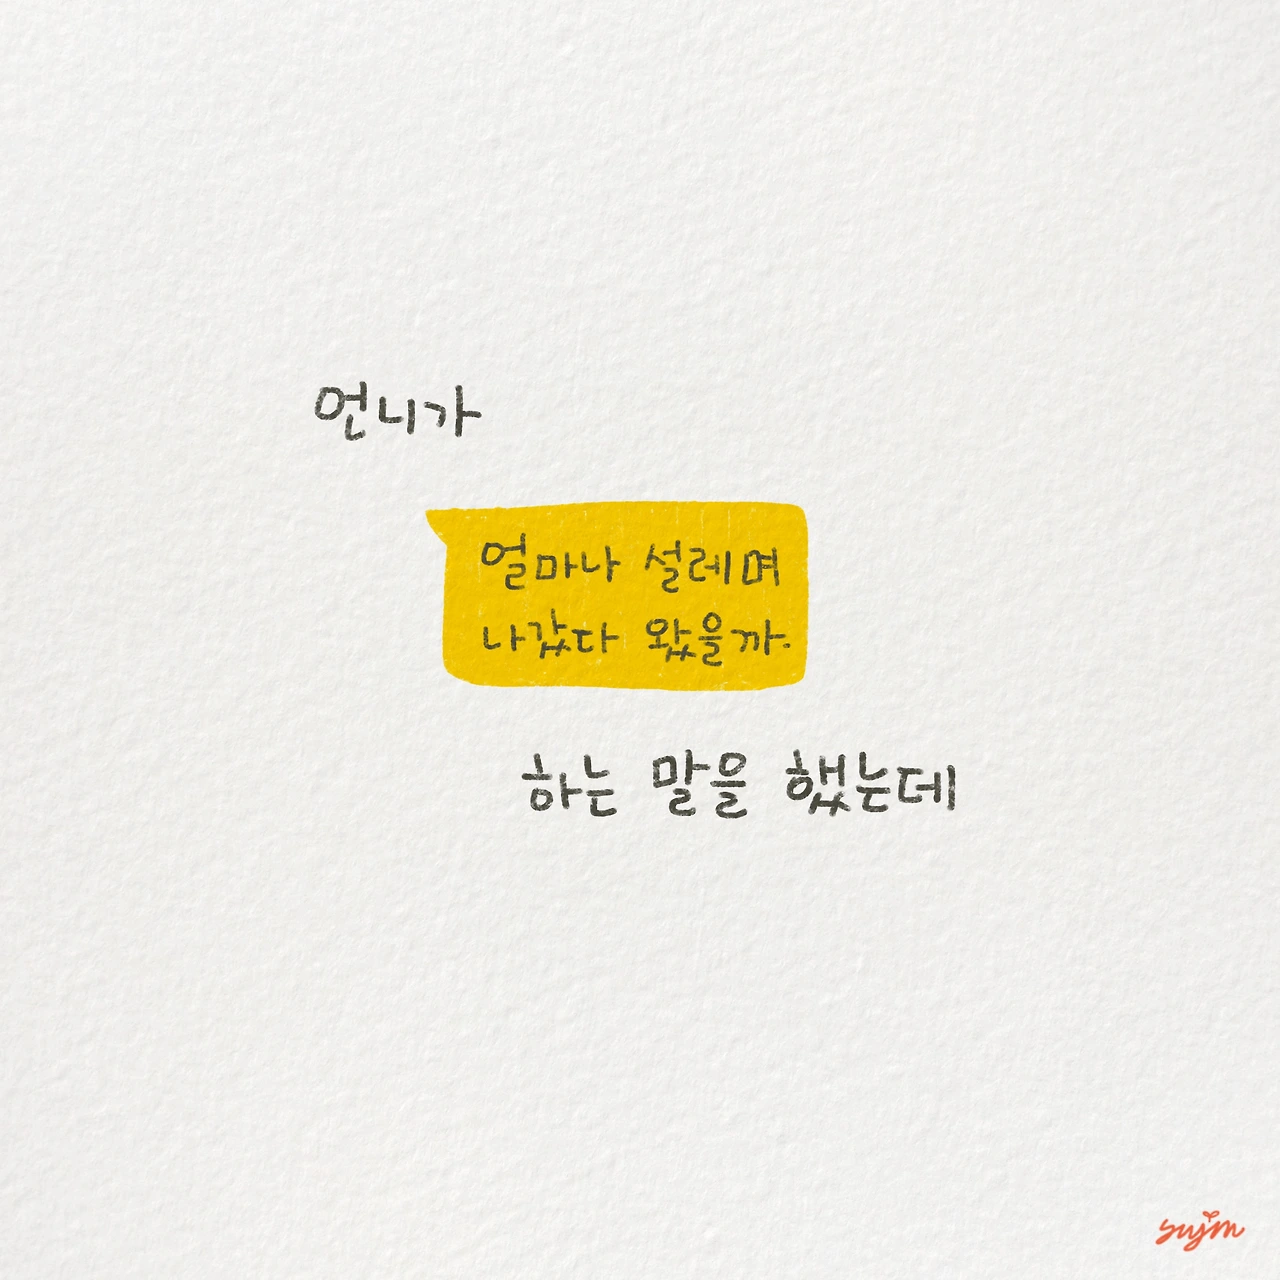 언니가
얼마나 설레며
나갔다 왔을까.
하는 말을 했는데
sujm